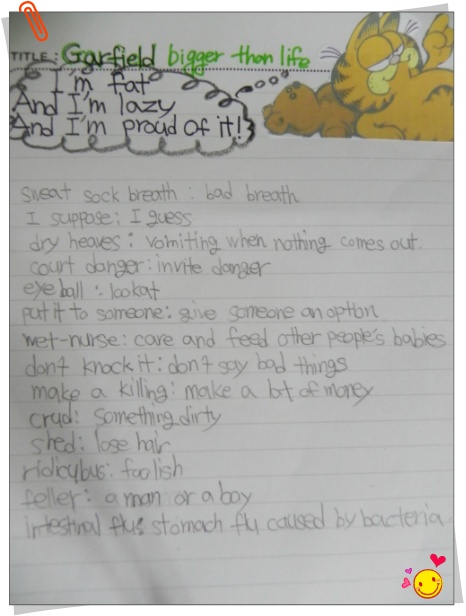 TITLE: Garfield bigger than life
I'm fat
And I'm lazy
And I'm proud of it!
sweat sock breath : bad breath
I suppose: I guess
dry heaves: vomiting when nothing comes out.
court danger: invite danger
eyeball : lookat
put it to someone: give someone an option
wet-nurse: care and feed other people's babies
don't knock it: don't say bad things
make a killing: make a lot of money
crud: something dirty
shed: lose hair
ridiculous: foolish
feller: a man or a boy
intestinal flu: stomach flu caused by bacteria.